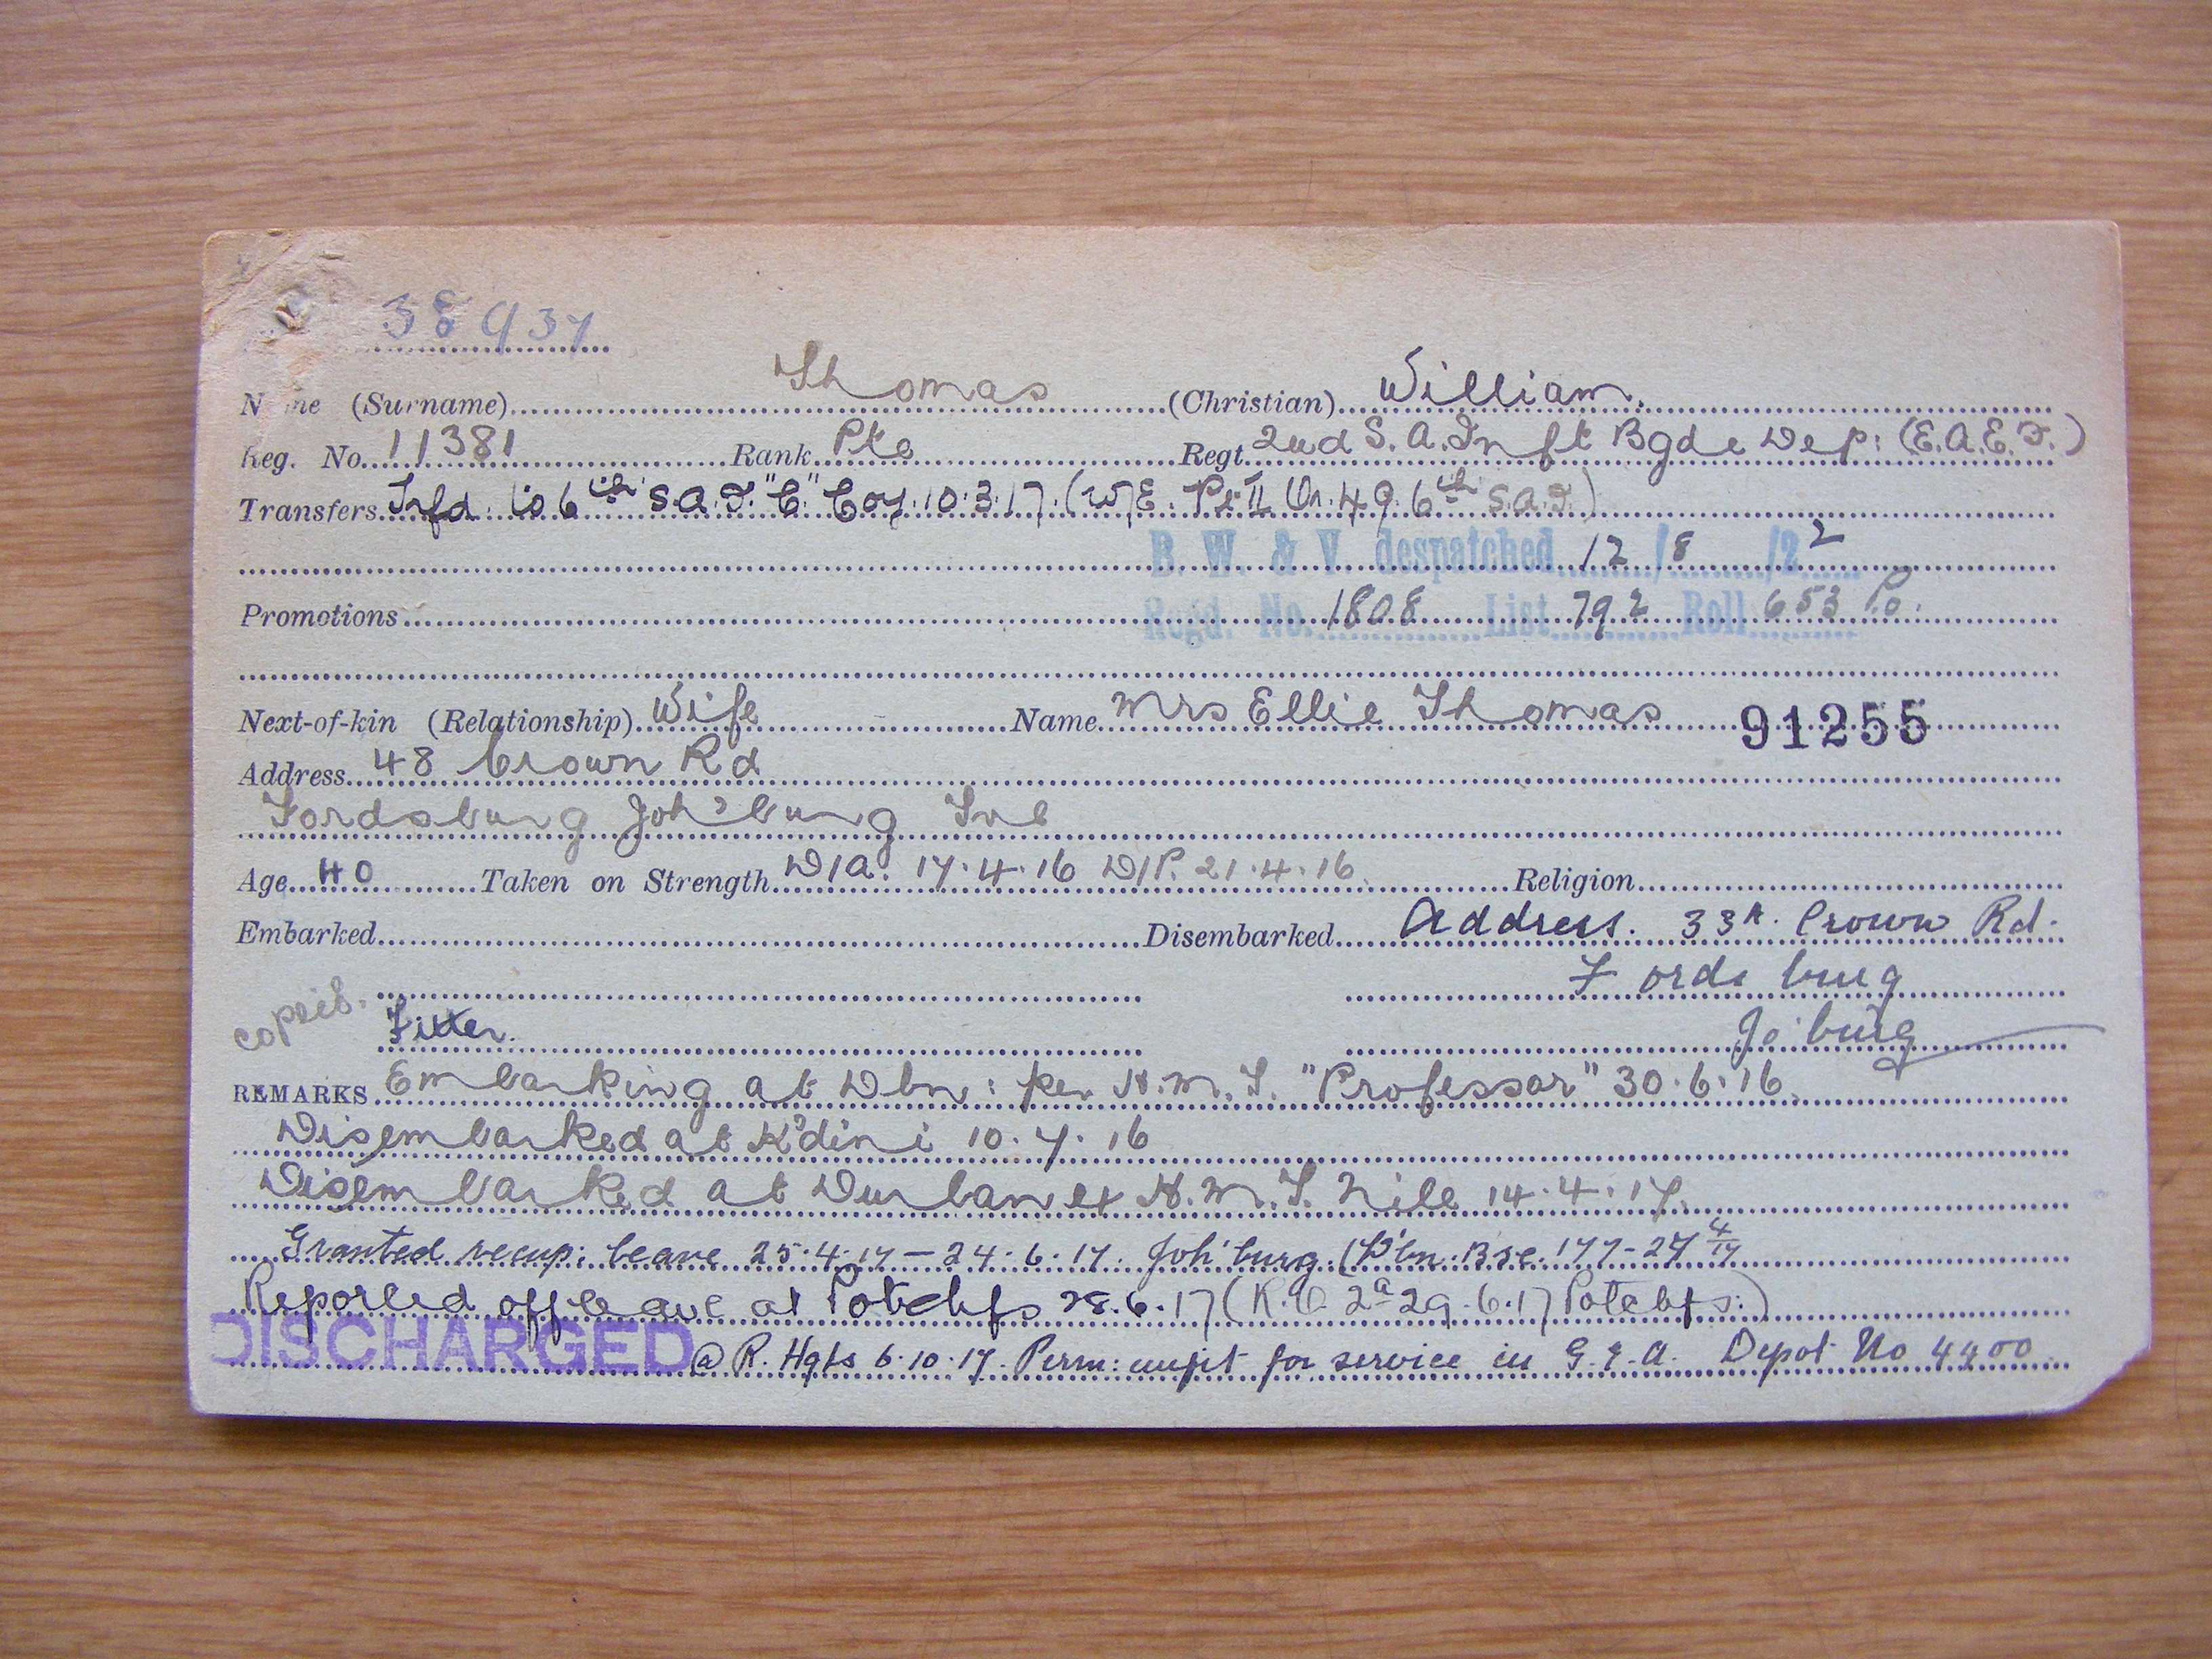 38937
Name (Surname) Thomas (Christian) William.
Reg. No. 11381 Rank Pte Regt. 2nd S.A. Inft Bgde Dep: (E.A.E.F.)
Transfers Trfd. to 6th S.A.I. "C" Coy. 10.3.17. (W/E. Pt II Or. 49. 6th S.A.I.)
B. W. & V. despatched 12/8/22
Promotions Regd. No. 1808 List 792 Roll 653 Po.
Next-of-kin (Relationship) Wife Name Mrs Ellie Thomas 91255
Address 48 Crown Rd
Fordsburg Joh'burg Tvl
Age 40 Taken on Strength D/A. 17.4.16 D/P. 21.4.16 Religion
Embarked Disembarked Address. 33A. Crown Rd.
Fordsburg
Fitter. Jo'burg
REMARKS Embarking at Dbn: per H.M.T. "Professor" 30.6.16.
Disembarked at K'dini 10.7.16
Disembarked at Durban ex H.M.T. Nile 14.4.17.
Granted recup: leave 25.4.17 – 24.6.17. Joh'burg. (D'bn. Bse. 177-27 4/17
Reported off leave at Potchfs 28.6.17 (K.O. 2a 29.6.17 Potchfs:)
DISCHARGED @ R. Hqts 6.10.17. Perm: unfit for service in G.E.A. Depot No 4400